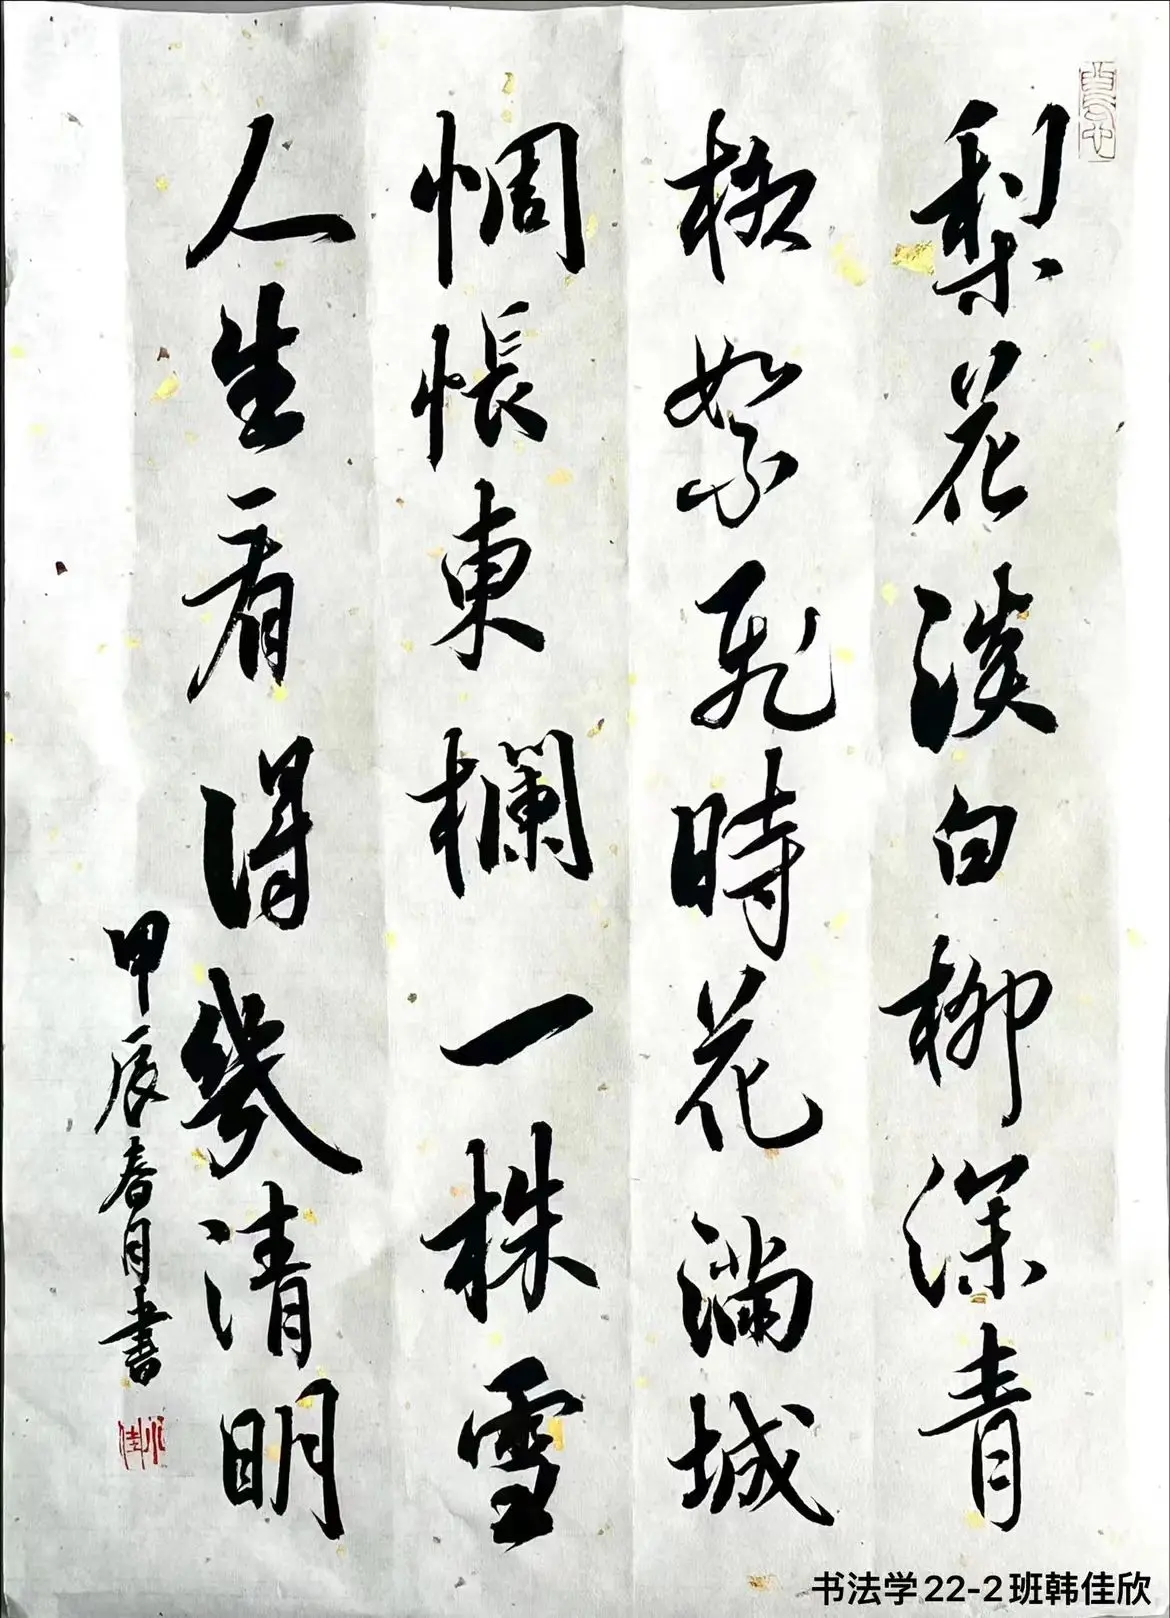 梨花淡白柳深青
柳絮飛時花滿城
惆悵東欄一株雪
人生看得幾清明
甲辰春月書
书法学22-2班韩佳欣